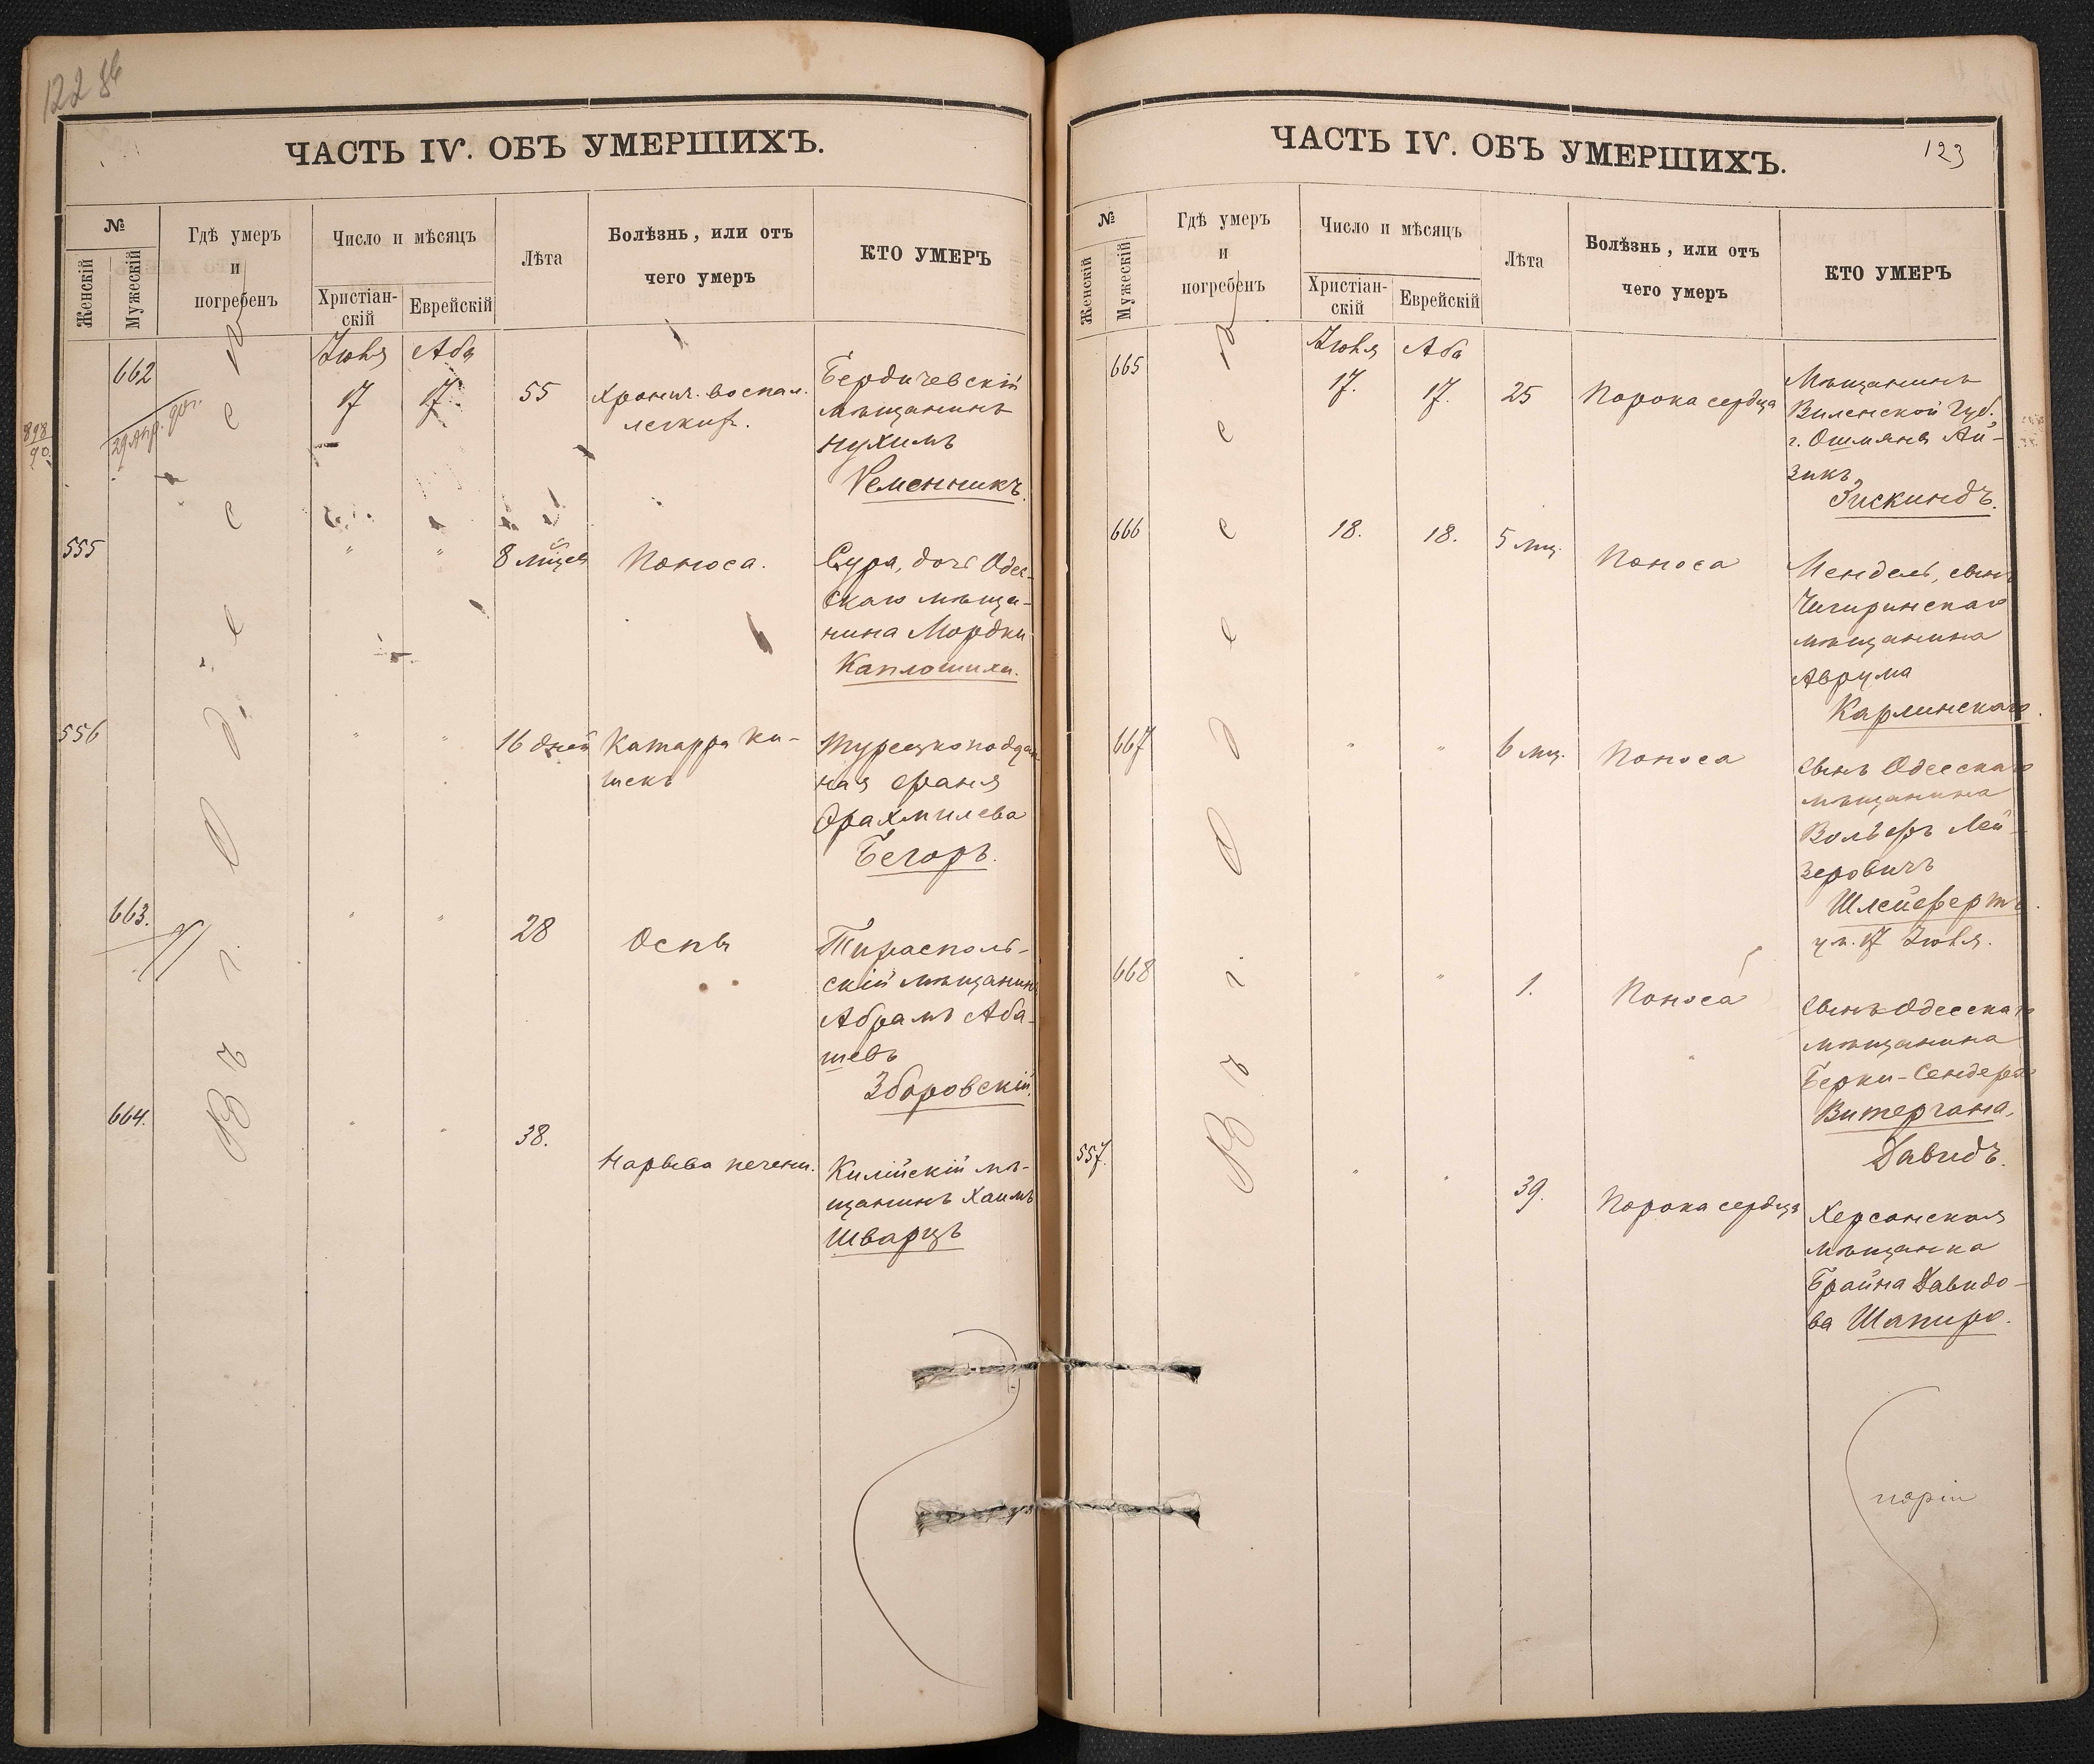 122 об
ЧАСТЬ IV. ОБЪ УМЕРШИХЪ.
№
Женскій
Мужескій
Гдѣ умеръ
и
погребенъ
Число и мѣсяцъ
Христіан-
скій
Еврейскій
Лѣта
Болѣзнь, или отъ
чего умеръ
КТО УМЕРЪ
Въ г. Одессѣ
Іюля Аба
662 17 17 55 Хронич. воспал.
легких.
Бердичевскій
мѣщанинъ
Нухимъ
Ременникъ.
898
90
29 апр.
555 " " 8 мѣцев Поноса.
Сура, дочь Одес-
скаго мѣща-
нина Мордки
556 " " 16 дней Катарра ки-
шекъ
Турецкоподдан-
ная Франя
Орахмилева
Бегоръ.
663. " " 28 Оспы
Тирасполь-
скій мѣщанинъ
Абрамъ Аба-
Зборовскій.
664. " " 38. Нарыва печени.
Килійскій мѣ-
щанинъ Хаимъ
Шварцъ
ЧАСТЬ IV. ОБЪ УМЕРШИХЪ.
123
№
Женскій
Мужескій
Гдѣ умеръ
и
погребенъ
Число и мѣсяцъ
Христіан-
скій
Еврейскій
Лѣта
Болѣзнь, или отъ
чего умеръ
КТО УМЕРЪ
Въ г. Одессѣ
Іюля Аба
665 17. 17. 25 Порока сердца
Мѣщанинъ
Виленской Губ.
г. Ошмяна Ай-
зикъ
Зискиндъ.
666 18. 18. 5 мц. Поноса
Мендель, сынъ
Чигиринскаго
мѣщанина
Аврума
Карлинскаго.
667 " " 6 мц. Поноса
сынъ Одесскаго
мѣщанина
Вольфъ Лей-
зеровичъ
Шлейфертъ.
ум. 17 Іюля.
668 " " 1. Поноса
сынъ Одесскаго
мѣщанина
Берки-Сендера
Витергана,
Давидъ.
557. " " 39. Порока сердца
Херсонская
мѣщанка
Брайна Давидо-
ва Шапиро.